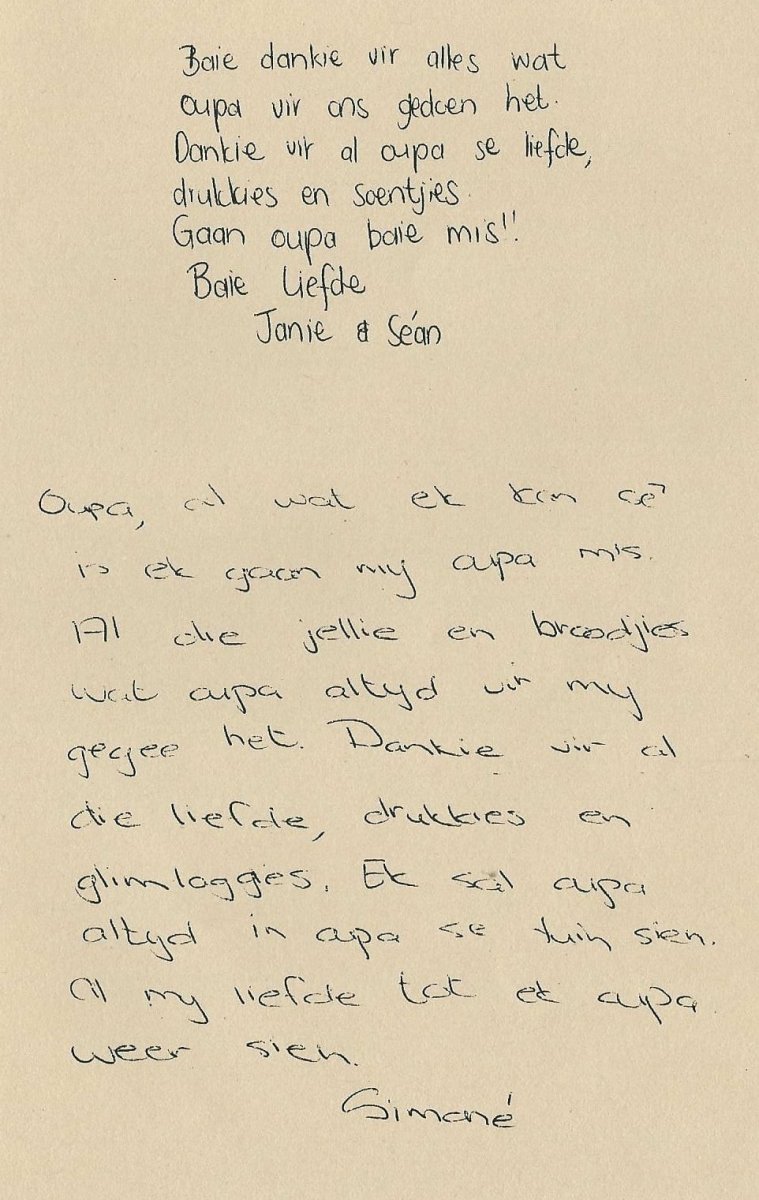 Baie dankie vir alles wat
oupa vir ons gedoen het.
Dankie vir al oupa se liefde,
drukkies en soentjies.
Gaan oupa baie mis!!
Baie Liefde
Janie & Seán
Oupa, al wat ek kan sê
is ek gaan my oupa mis.
Al die jellie en broodjies
wat oupa altyd vir my
gegee het. Dankie vir al
die liefde, drukkies en
glimlaggies. Ek sal oupa
altyd in oupa se tuin sien.
Al my liefde tot ek oupa
weer sien.
Simoné